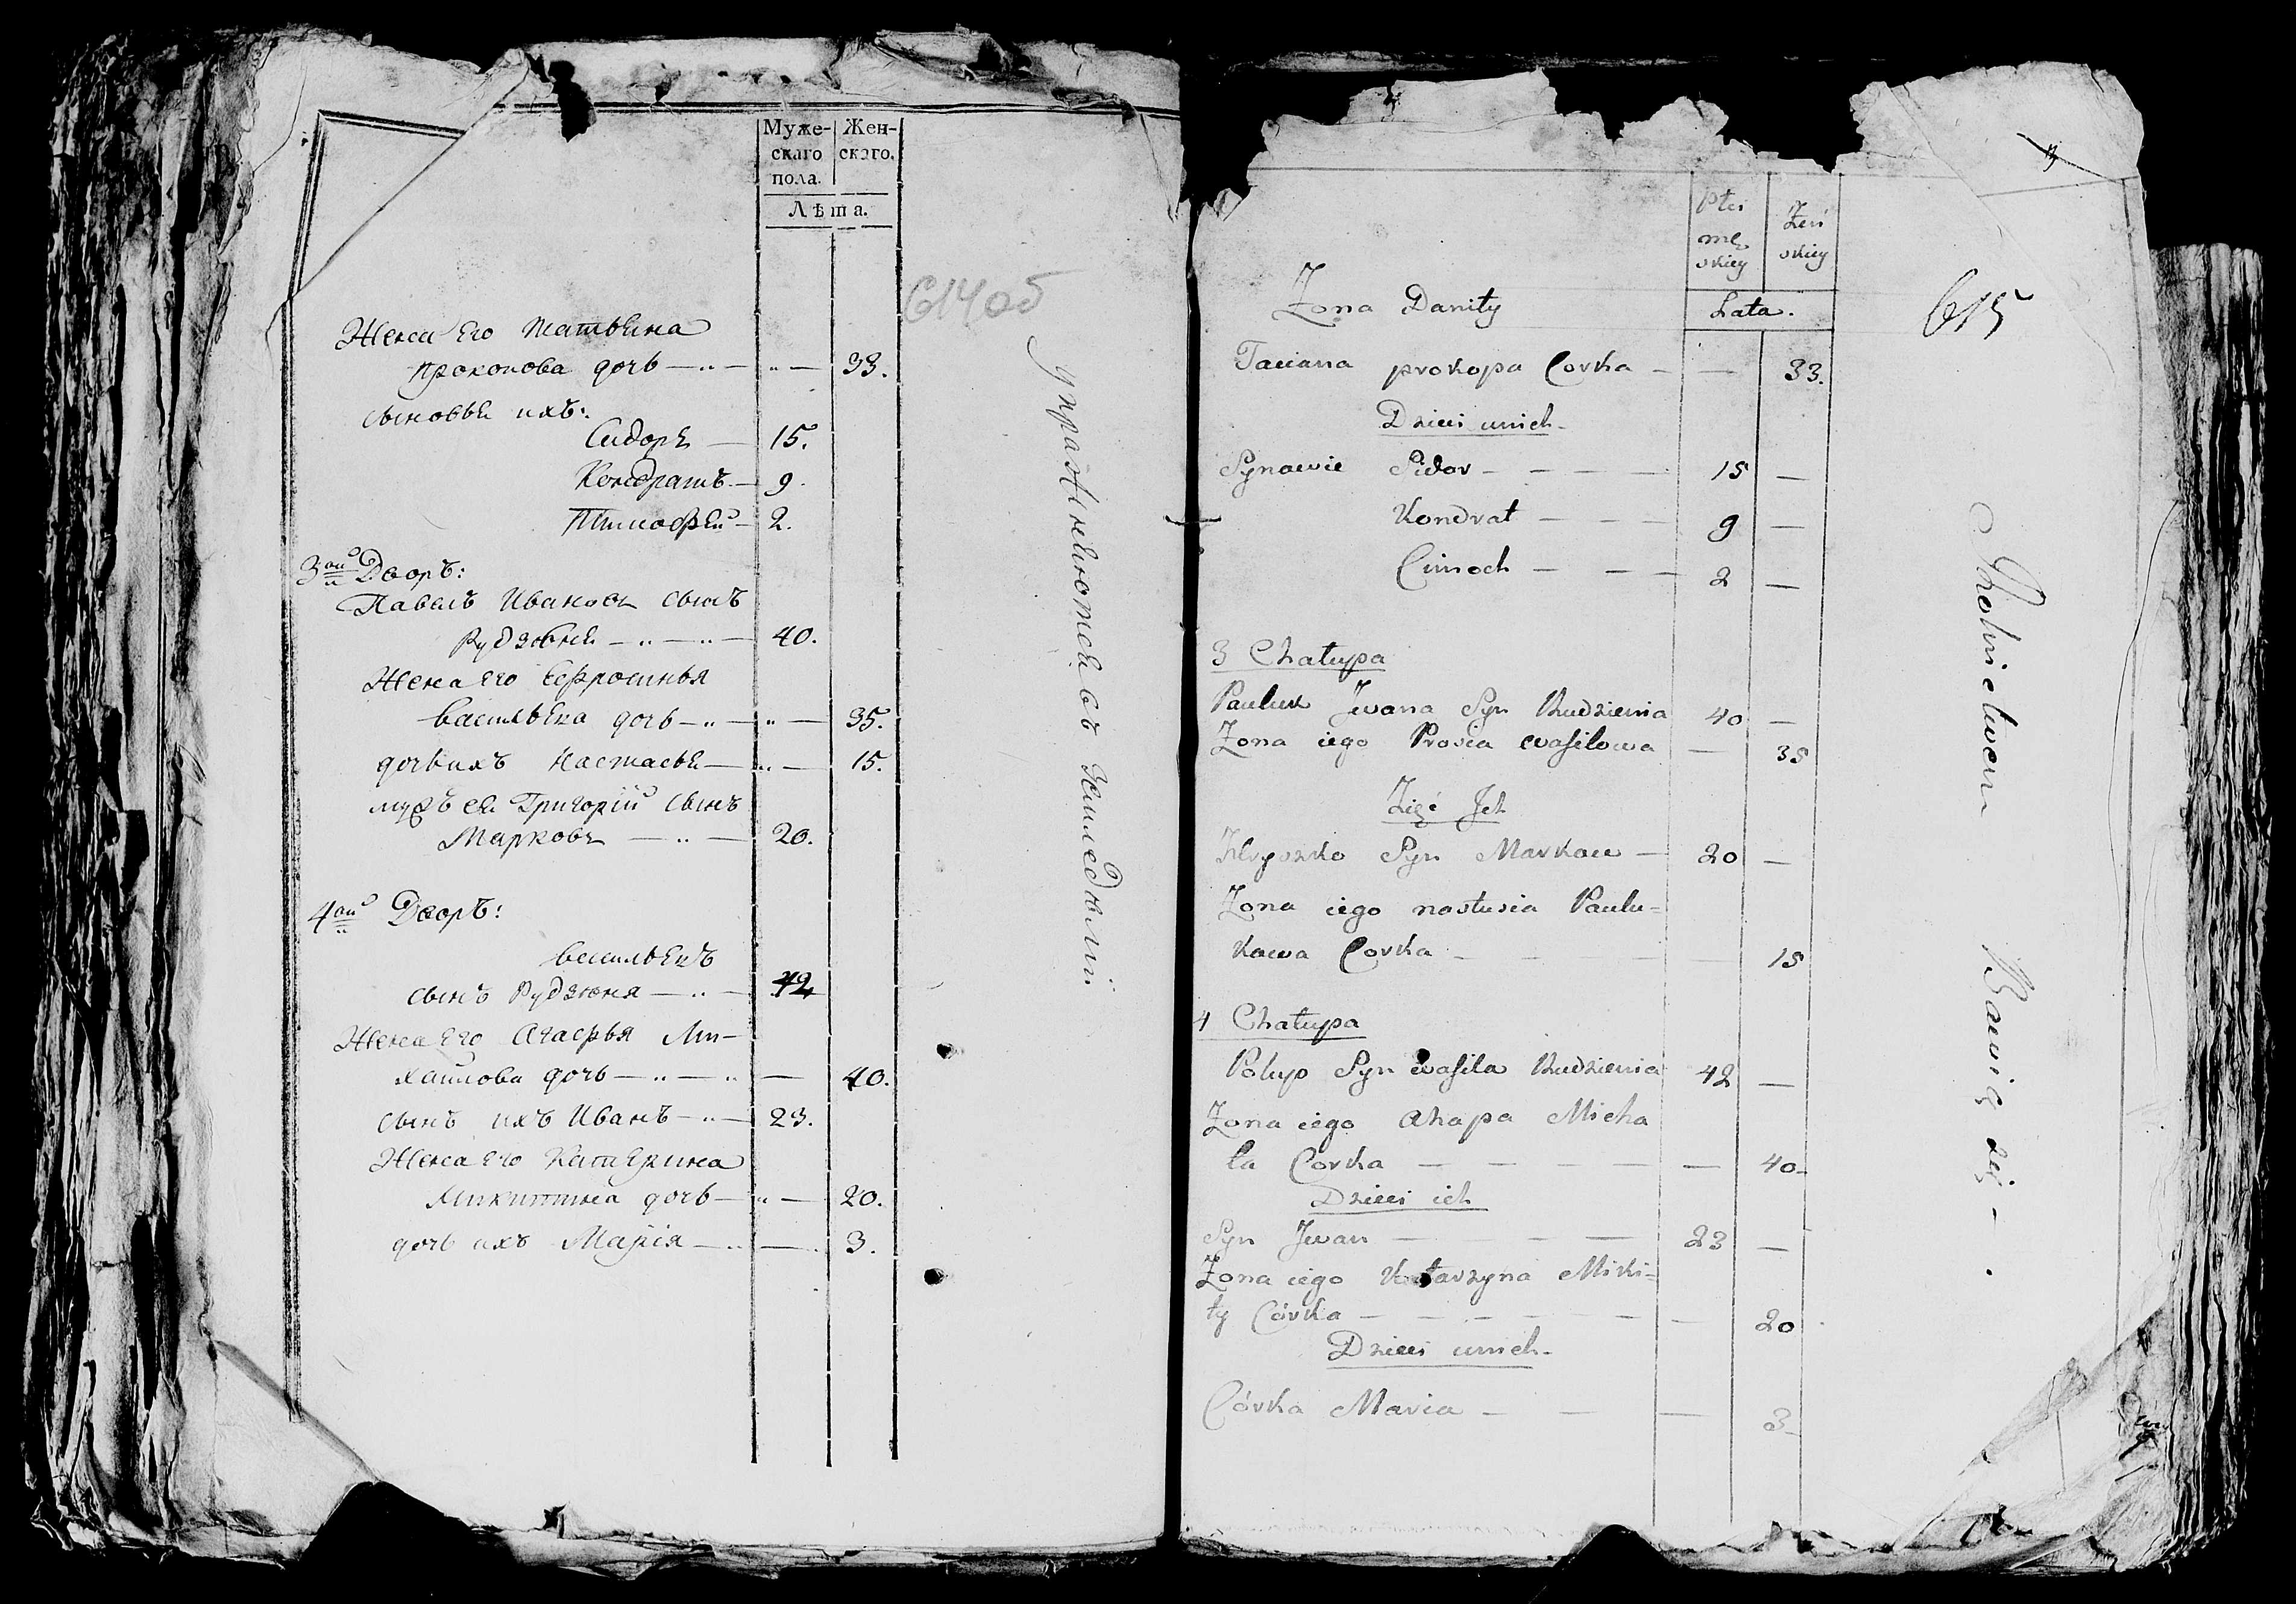 Муже-
скаго
пола.
Жен-
скаго.
Лѣта.
614об
Жена Его Татьяна
Прокопова дочь — 33.
сыновья ихъ:
Сидоръ — 15.
Кондратъ — 9.
Тимофей — 2.
3ой Дворъ:
Павелъ Ивановъ сынъ
Рудзюня — 40.
Жена Его Ефросинья
Васильева дочь — 35.
дочь ихъ Настасья — 15.
мужъ ея Григорій сынъ
Марковъ — 20.
4ой Дворъ:
Васильевъ
сынъ Рудзюня — 42
Жена Его Агафья Ми-
хайлова дочь — 40.
сынъ ихъ Иванъ — 23.
Жена Его Катерина
Микитина дочь — 20.
дочь ихъ Марія — 3.
упражняются въ
Płci
mę
skiey
Żeń
skiey
Lata.
615
Żona Daniły
Taciana prokopa Corka — 33.
Dzieci unich
Synowie Sidor — 15 —
Kondrat — 9 —
Cimoch — 2 —
3 Chałupa
Pauluk Jwana Syn Rudzienia 40 —
Żona iego Prosia wasilowa — 35
Zięć Jch
Hryszko Syn Markau — 20 —
Żona iego nastusia Paulu=
kowa Corka — 15
4 Chałupa
Syn wasila Rudzienia 42 —
Żona iego Ahapa Micha
ła Corka — 40
Dzieci ich
Syn Jwan — 23 —
Żona iego Katarzyna Miki=
ty Córka — 20
Dzieci unich
Córka Maria — 3
Rolnictwem Bawią się